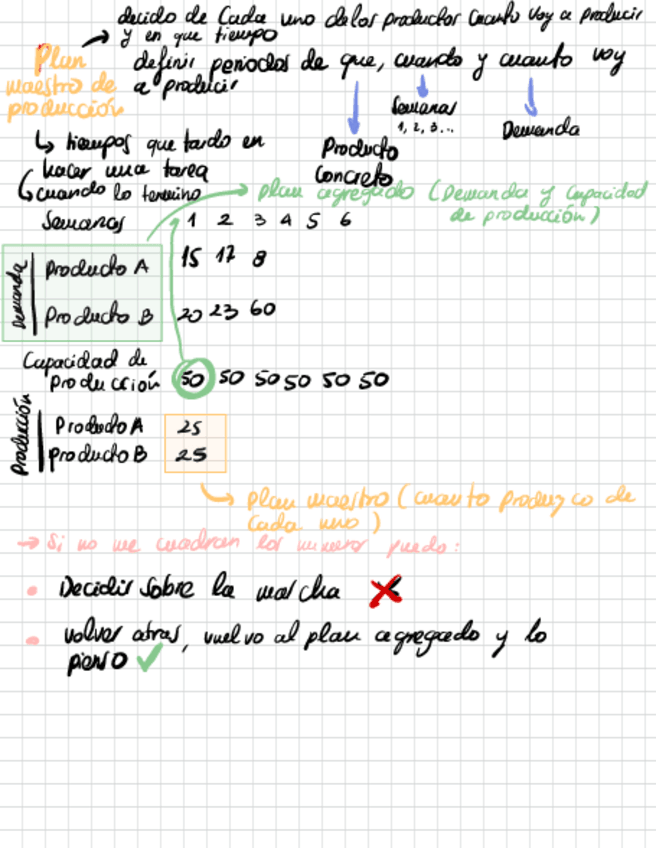 decido de cada uno de los productos cuanto voy a producir
y en que tiempo
Plan
maestro de
producción
definir periodos de que, cuando y cuanto voy
a producir
Semanas
1, 2, 3...
Demanda
Producto
Concreto
↳ tiempos que tardo en
hacer una tarea
↳ cuando lo termino
plan agregado (Demanda y capacidad
de producción)
Semanas 1 2 3 4 5 6
Demanda
Producto A 15 17 8
Producto B 20 23 60
Capacidad de
Producción 50 50 50 50 50 50
Producción
Producto A 25
Producto B 25
plan maestro (cuanto produzco de
cada uno)
→ Si no me cuadran los numeros puedo:
• Decidir sobre la marcha ✗
• volver atras, vuelvo al plan agregado y lo
pienso ✓